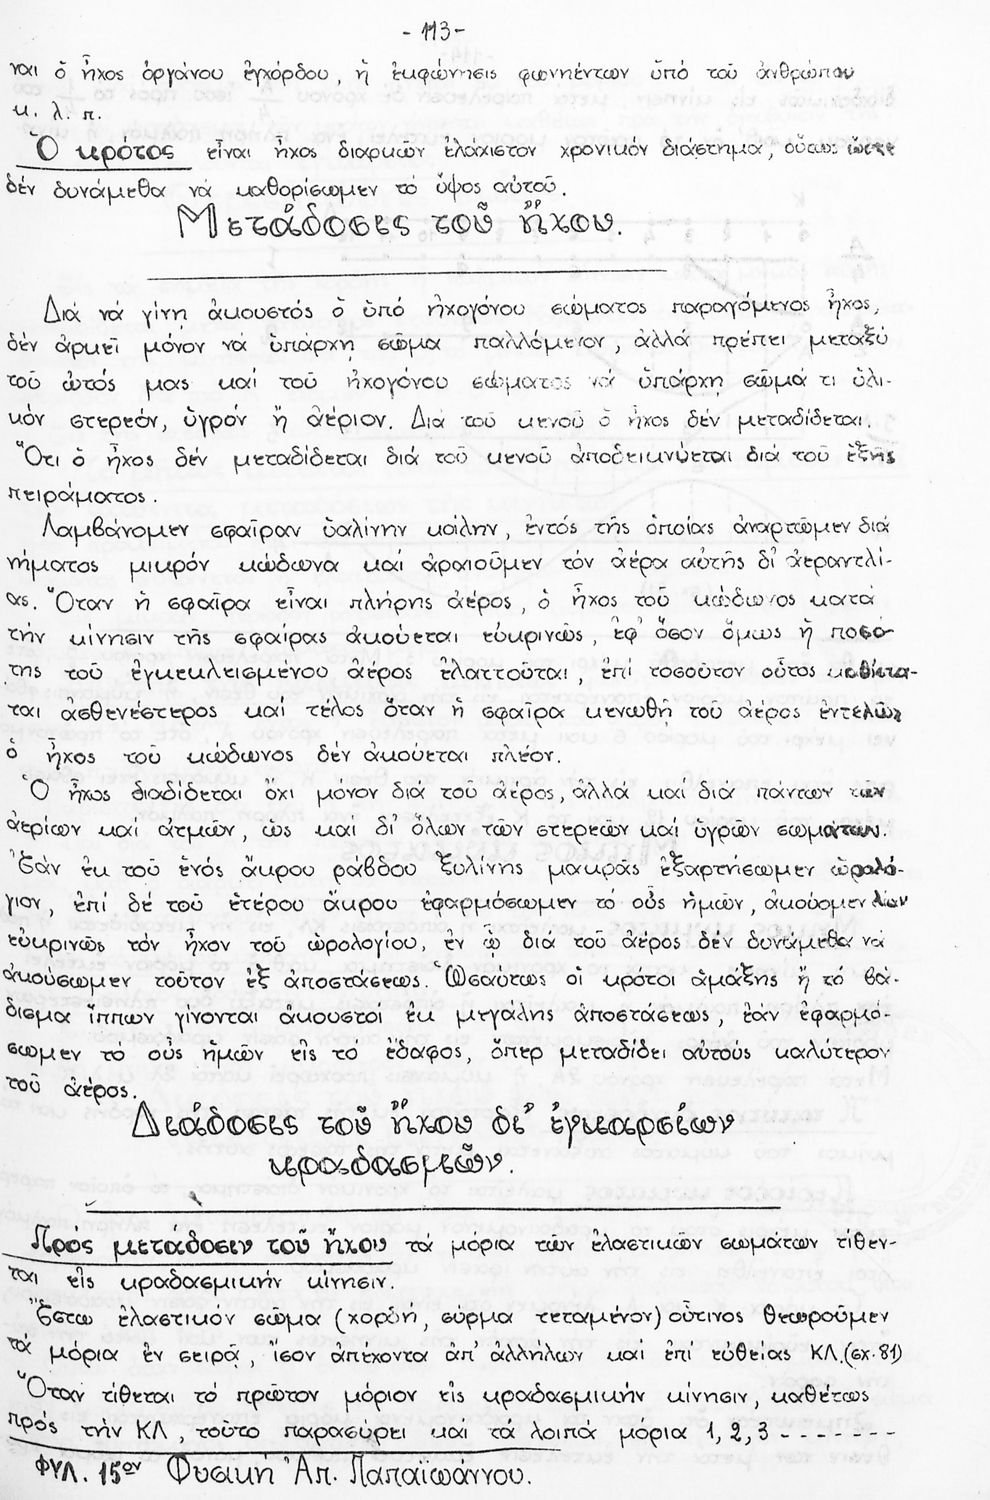 - 113 -
ναι ὁ ἦχος ὀργάνου ἐγχόρδου, ἡ ἐκφώνησις φωνηέντων ὑπό τοῦ ἀνθρώπου
κ. λ. π.
Ὁ κρότος εἶναι ἦχος διαρκῶν ἐλάχιστον χρονικόν διάστημα, οὕτως ὥστε
δέν δυνάμεθα νά καθορίσωμεν τό ὕψος αὐτοῦ.
Μετάδοσις τοῦ ἤχου.
Διά νά γίνῃ ἀκουστός ὁ ὑπό ἠχογόνου σώματος παραγόμενος ἦχος,
δέν ἀρκεῖ μόνον νά ὑπάρχῃ σῶμα παλλόμενον, ἀλλά πρέπει μεταξύ
τοῦ ὠτός μας καί τοῦ ἠχογόνου σώματος νά ὑπάρχῃ σῶμά τι ὑλι-
κόν στερεόν, ὑγρόν ἤ ἀέριον. Διά τοῦ κενοῦ ὁ ἦχος δέν μεταδίδεται.
Ὅτι ὁ ἦχος δέν μεταδίδεται διά τοῦ κενοῦ ἀποδεικνύεται διά τοῦ ἑξῆς
πειράματος.
Λαμβάνομεν σφαῖραν ὑαλίνην κοίλην, ἐντός τῆς ὁποίας ἀναρτῶμεν διά
νήματος μικρόν κώδωνα καί ἀραιοῦμεν τόν ἀέρα αὐτῆς δι' ἀεραντλί-
ας. Ὅταν ἡ σφαῖρα εἶναι πλήρης ἀέρος, ὁ ἦχος τοῦ κώδωνος κατά
τήν κίνησιν τῆς σφαίρας ἀκούεται εὐκρινῶς, ἐφ' ὅσον ὅμως ἡ ποσό-
της τοῦ ἐγκεκλεισμένου ἀέρος ἐλαττοῦται, ἐπί τοσοῦτον οὗτος καθίστα-
ται ἀσθενέστερος καί τέλος ὅταν ἡ σφαῖρα κενωθῇ τοῦ ἀέρος ἐντελῶς
ὁ ἦχος τοῦ κώδωνος δέν ἀκούεται πλέον.
Ὁ ἦχος διαδίδεται ὄχι μόνον διά τοῦ ἀέρος, ἀλλά καί διά πάντων τῶν
ἀερίων καί ἀτμῶν, ὡς καί δι' ὅλων τῶν στερεῶν καί ὑγρῶν σωμάτων.
Ἐάν ἐκ τοῦ ἑνός ἄκρου ράβδου ξυλίνης μακρᾶς ἐξαρτήσωμεν ὡρολό-
γιον, ἐπί δέ τοῦ ἑτέρου ἄκρου ἐφαρμόσωμεν τό οὖς ἡμῶν, ἀκούομεν λίαν
εὐκρινῶς τόν ἦχον τοῦ ὡρολογίου, ἐν ᾧ δια τοῦ ἀέρος δέν δυνάμεθα νά
ἀκούσωμεν τοῦτον ἐξ ἀποστάσεως. Ὡσαύτως οἱ κρότοι ἁμάξης ἤ τό βά-
δισμα ἵππων γίνονται ἀκουστοί ἐκ μεγάλης ἀποστάσεως, ἐάν ἐφαρμό-
σωμεν τό οὖς ἡμῶν εἰς τό ἔδαφος, ὅπερ μεταδίδει αὐτούς καλύτερον
τοῦ ἀέρος.
Διάδοσις τοῦ ἤχου δι' ἐγκαρσίων
κραδασμῶν.
Πρός μετάδοσιν τοῦ ἤχου τά μόρια τῶν ἐλαστικῶν σωμάτων τίθεν-
ται εἰς κραδασμικήν κίνησιν.
Ἔστω ἐλαστικόν σῶμα (χορδή, σύρμα τεταμένον) οὗτινος θεωροῦμεν
τά μόρια ἐν σειρᾷ, ἴσον ἀπέχοντα ἀπ' ἀλλήλων καί ἐπί εὐθείας ΚΛ.(σχ.81)
Ὅταν τίθεται τό πρῶτον μόριον εἰς κραδασμικήν κίνησιν, καθέτως
πρός τήν ΚΛ, τοῦτο παρασύρει καί τά λοιπά μόρια 1, 2, 3 - - - - - - -
ΦΥΛ. 15ον Φυσική Ἀπ. Παπαϊωάννου.